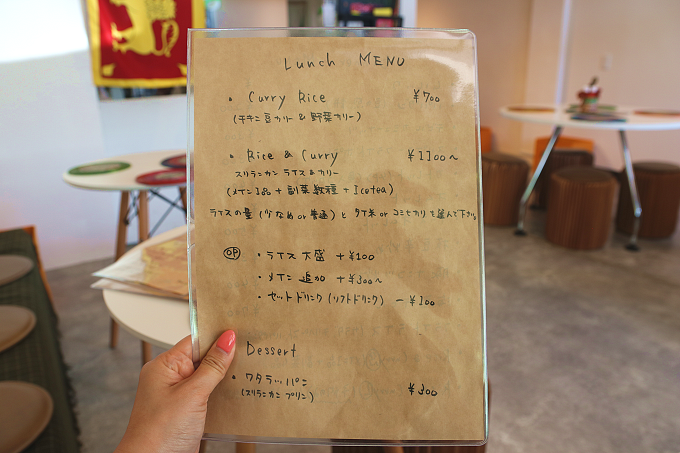 Lunch MENU
・ Curry Rice ¥700
(チキン豆カリー & 野菜カリー)
・ Rice & Curry ¥1100〜
スリランカン ライス&カリー
(メイン1品 + 副菜数種 + Icetea)
ライスの量 (少なめ or 普通) と タイ米 or コシヒカリ を選んで下さい
OP ・ライス 大盛 +¥100
・メイン 追加 +¥300〜
・セットドリンク (ソフトドリンク) −¥100
Dessert
・ワタラッパン ¥300
(スリランカン プリン)